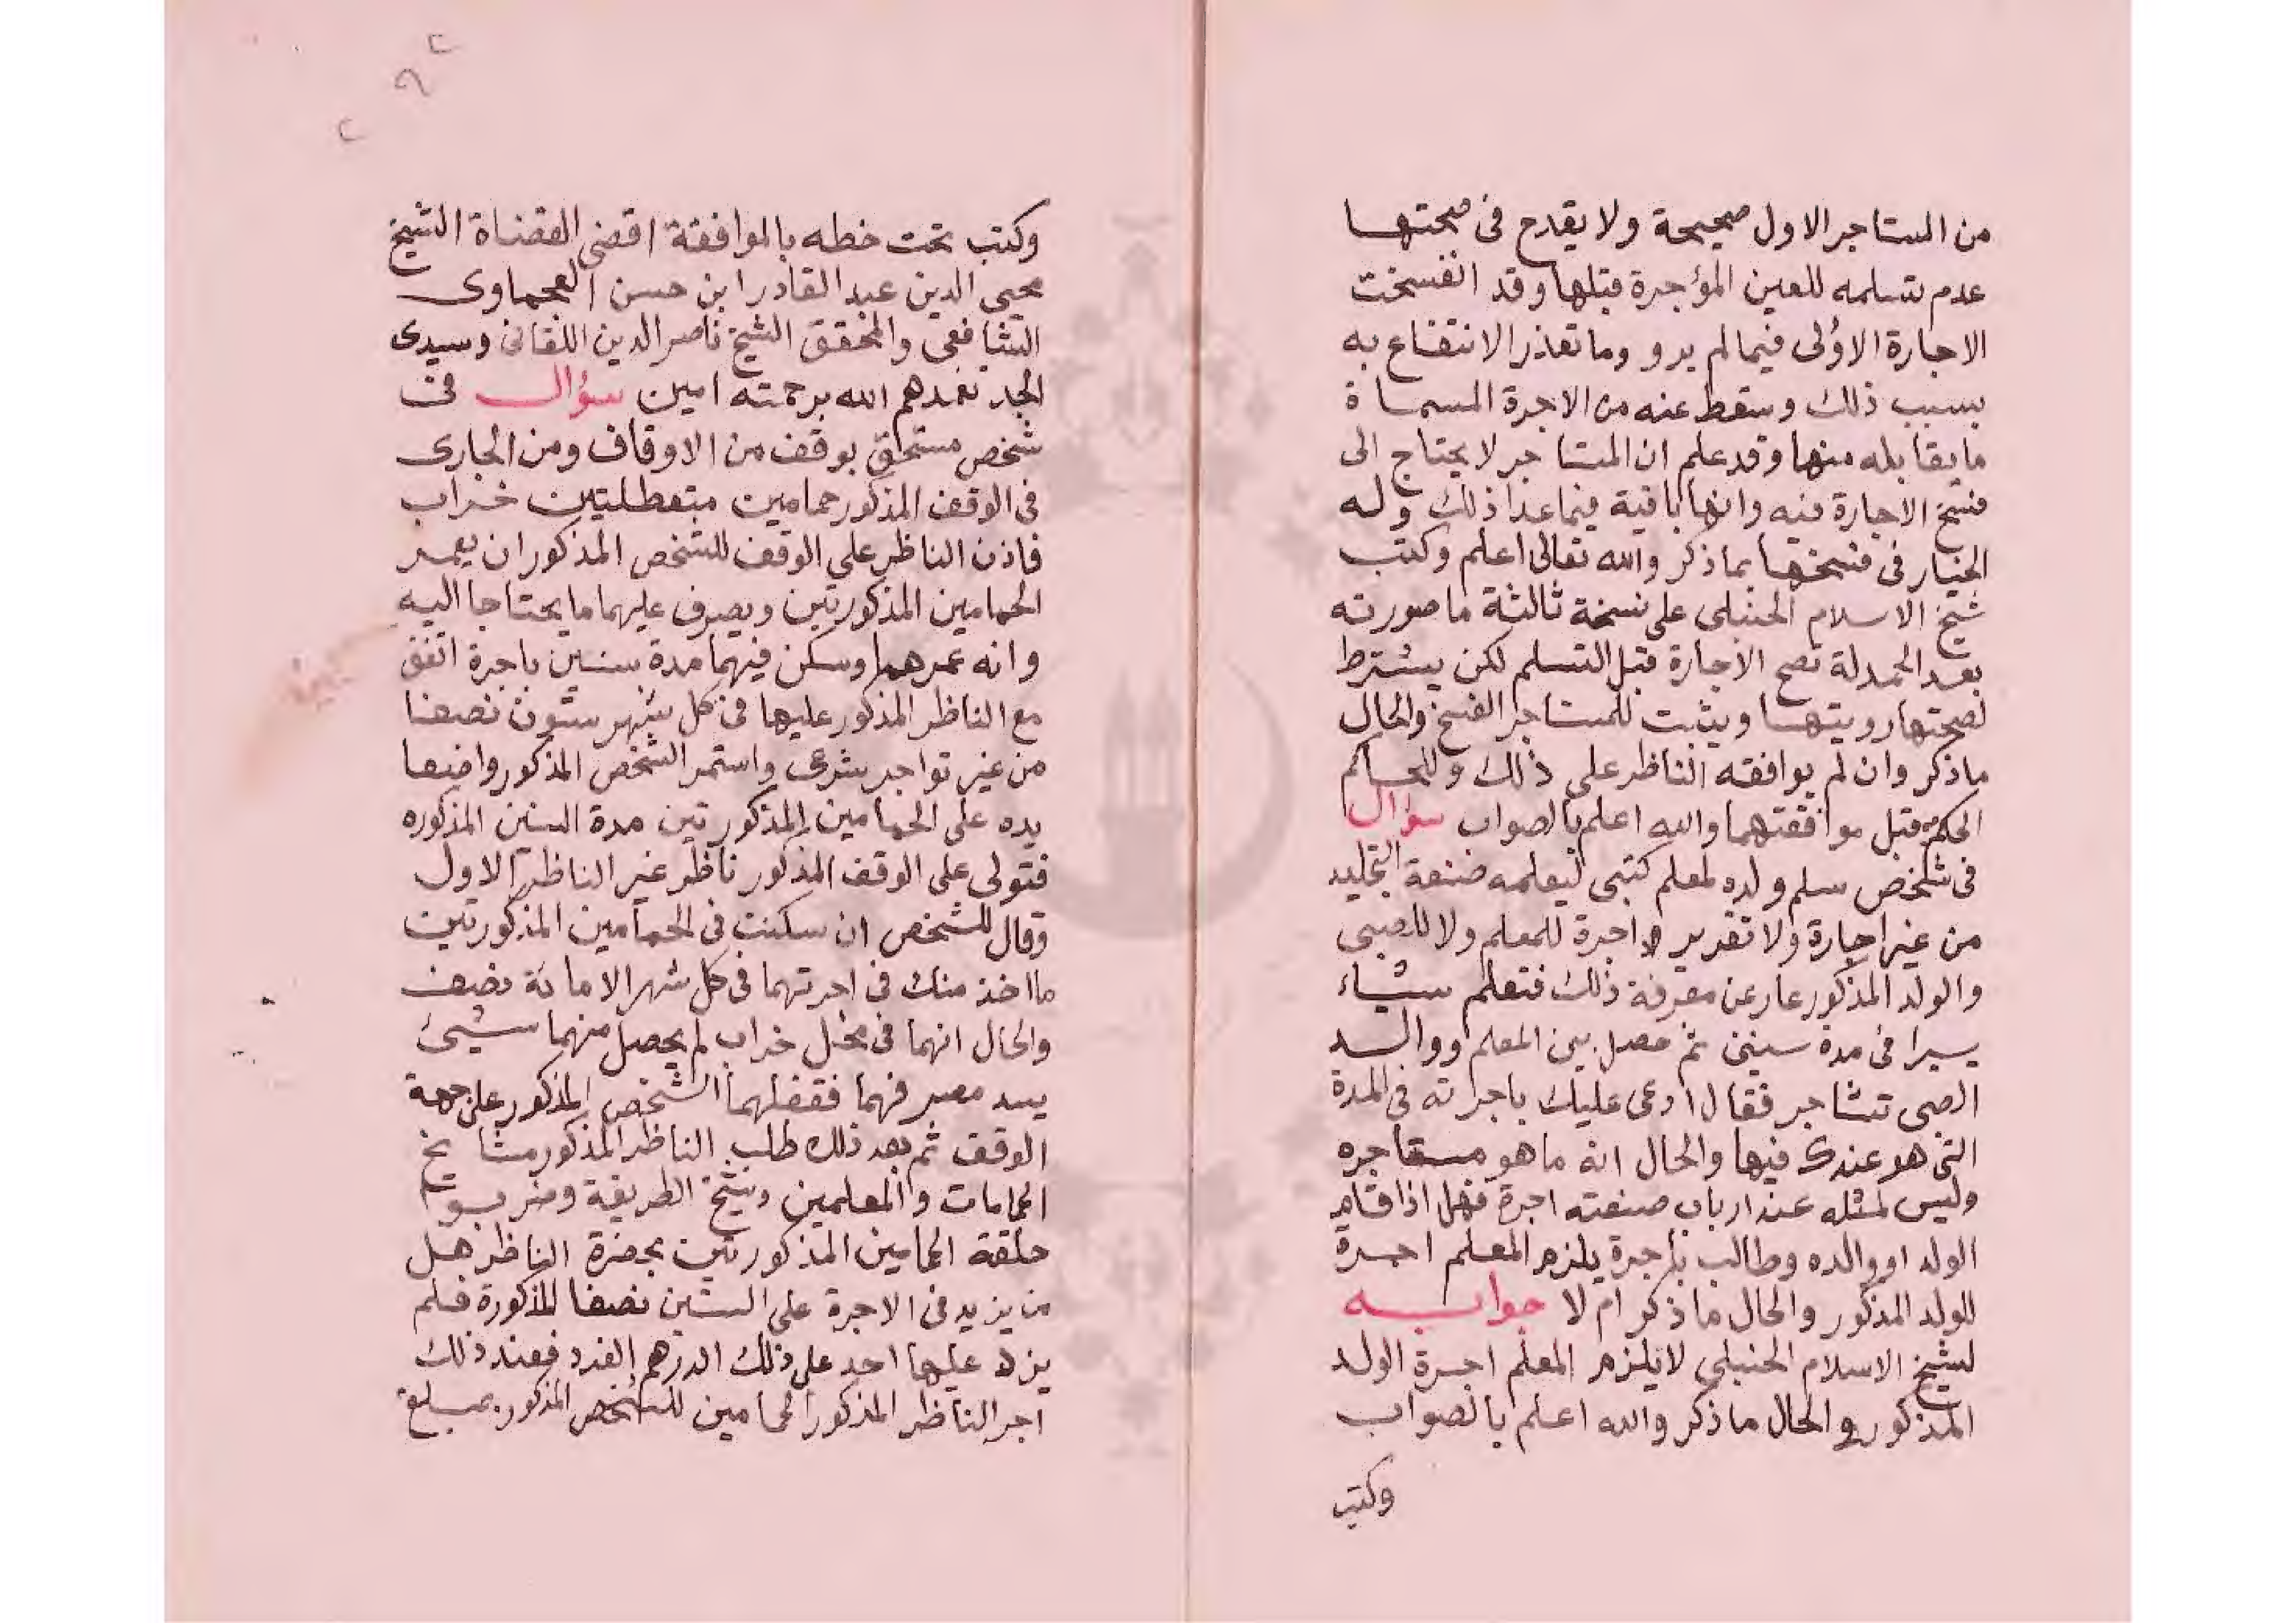 من المستاجر الاول صحيحة ولا يقدح فى صحتها
عدم تسلمه للعين المؤجرة قبلها وقد انفسخت
الاجارة الاولى فيما لم يرو وما تعذر الانتفاع به
بسبب ذلك وسقط عنه من الاجرة المسماة
ما يقابله منها وقد علم ان المستاجر لا يحتاج الى
فسخ الاجارة فيه وانها باقية فيما عدا ذلك وله
الخيار فى فسخها بما ذكر والله تعالى اعلم وكتب
شيخ الاسلام الحنبلى على نسخة ثالثة ما صورته
بعد الحمدلة تصح الاجارة قبل التسلم لكن يشترط
لصحتها رويتها ويثبت للمستاجر الفسخ والحال
ماذكر وان لم يوافقه الناظر على ذلك وللحاكم
الحكم قبل موافقتهما والله اعلم بالصواب سؤال
فى شخص سلم ولده لمعلم كتبى ليعلمه صنعة التجليد
من غير اجارة ولا تقدير اجرة للمعلم ولا للصبى
والولد المذكور عار عن معرفة ذلك فتعلم شياء
يسيرا فى مدة سنين ثم حصل بين المعلم ووالد
الصبى تشاجر فقال ادعى عليك باجرته فى المدة
التى هو عندك فيها والحال انه ما هو مستاجره
وليس لمثله عند ارباب صنعته اجرة فهل اذا قام
الولد او والده وطالب باجرة يلزم المعلم اجرة
للولد المذكور والحال ما ذكر ام لا جوابه
لشيخ الاسلام الحنبلى لا يلزم المعلم اجرة الولد
المذكور والحال ماذكر والله اعلم بالصواب
وكتب
وكتب تحت خطه بالموافقة اقضى القضاة الشيخ
محيى الدين عبد القادر ابن حسن
الشافعى والمحقق الشيخ ناصر الدين اللقانى وسيدى
الجد تغمدهم الله برحمته امين سؤال فى
شخص مستحق بوقف من الاوقاف ومن الجارى
فى الوقف المذكور حمامين متعطلتين خراب
فاذن الناظر على الوقف للشخص المذكور ان يعمر
الحمامين المذكورتين ويصرف عليهما ما يحتاجا اليه
وانه عمرهما وسكن فيهما مدة سنين باجرة اتفق
مع الناظر المذكور عليها فى كل شهر ستون نصفا
من غير تواجر شرعى واستمر الشخص المذكور واضعا
يده على الحمامين المذكورتين مدة السنين المذكوره
فتولى على الوقف المذكور ناظر غير الناظر الاول
وقال للشخص ان سكنت فى الحمامين المذكورتين
ما اخذ منك فى اجرتهما فى كل شهر الا مائة نصف
والحال انهما فى محل خراب لم يحصل منهما شيئ
يسد مصرفهما فقفلهما الشخص المذكور على جهة
الوقف ثم بعد ذلك طلب الناظر المذكور مشايخ
الحمامات والمعلمين وشيخ الطريقة وضربوا
حلقة الحمامين المذكورتين بحضرة الناظر هل
من يزيد فى الاجرة على الستين نصفا المذكورة فلم
يزد عليها احد على ذلك الدرهم الفرد فعند ذلك
اجر الناظر المذكور الحمامين للشخص المذكور بمبلغ